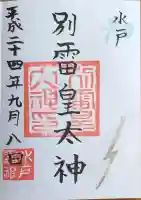 水戸
別雷皇太神
平成二十四年九月八日